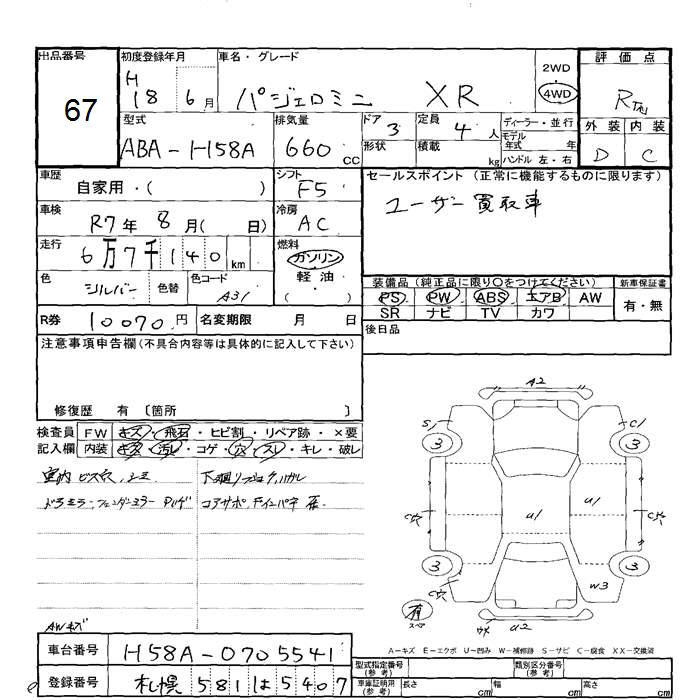 出品番号 初度登録年月 車名・グレード 評価点
67 H 18 6月 パジェロミニ XR 2WD 4WD R
型式 排気量 ドア 定員 ディーラー・並行 外装 内装
ABA-H58A 660cc 3 4人 モデル年式 年 D C
形状 積載 kg ハンドル 左・右
車歴 自家用・( ) シフト F5 セールスポイント (正常に機能するものに限ります)
車検 R7年 8月( 日) 冷房 AC ユーザー買取車
走行 6万7千140km 燃料 ガソリン
軽油・
( )
色 シルバー 色替 色コード A31 装備品 (純正品に限り○をつけてください) 新車保証書
PS PW ABS エアB AW 有・無
R券 10070円 名変期限 月 日 SR ナビ TV カワ
後日品
注意事項申告欄(不具合内容等は具体的に記入して下さい)
修復歴 有 〔箇所 〕
検査員 FW キズ・飛石・ヒビ割・リペア跡・×要
記入欄 内装 キズ・汚レ・コゲ・穴・スレ・キレ・破レ
室内ビス穴、
ドラミラー、フェンダーミラー
AWキズ
A2
S1 C1
3 3
C穴 U1 U1 C穴
3 3
C穴 W3
有 スペア U2
A-キズ E-エクボ U-凹み W-補修跡 S-サビ C-腐食 XX-交換済
車台番号 H58A-0705541 型式指定番号(参考) 類別区分番号(参考)
登録番号 札幌 581 は 5407 車庫証明用(参考) 長さ cm 幅 cm 高さ cm